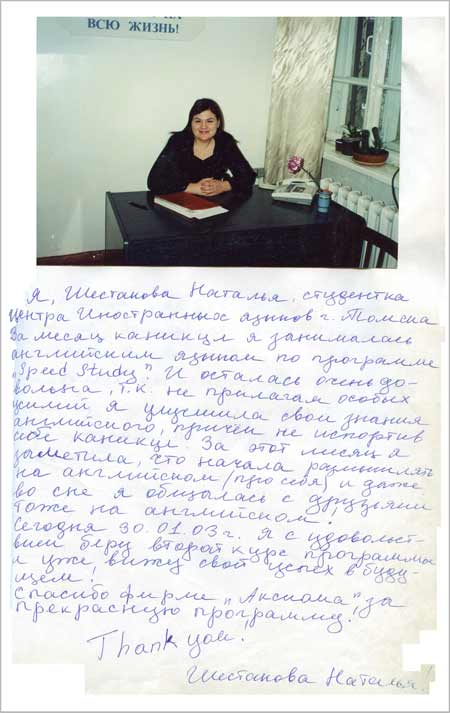 ВСЮ ЖИЗНЬ!
Я, Шестакова Наталья, студентка
Центра Иностранных языков г. Томска
За месяц каникул я занималась
английским языком по программе
„Speed Study". И осталась очень до-
вольна, т.к. не прилагая особых
усилий я улучшила свои знания
английского, причём не испортив
себе каникул. За этот месяц я
заметила, что начала размышлять
на английском (про себя) и даже
во сне я общалась с друзьями
тоже на английском!
Сегодня 30.01.03 г. Я с удовольст-
вием беру второй курс программы
и уже вижу свой успех в буду-
щем!
Спасибо фирме „Аксиома", за
прекрасную программу!
Thank you.
Шестакова Наталья!